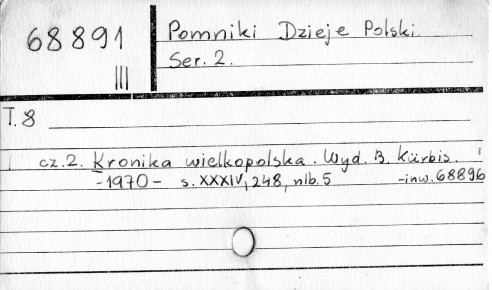 68891
III
Pomniki Dzieje Polski.
Ser. 2.
T. 8
cz. 2. Kronika wielkopolska. Wyd. B. Kürbis.
-1970- s. XXXIV, 248, nlb. 5 -inw. 68896